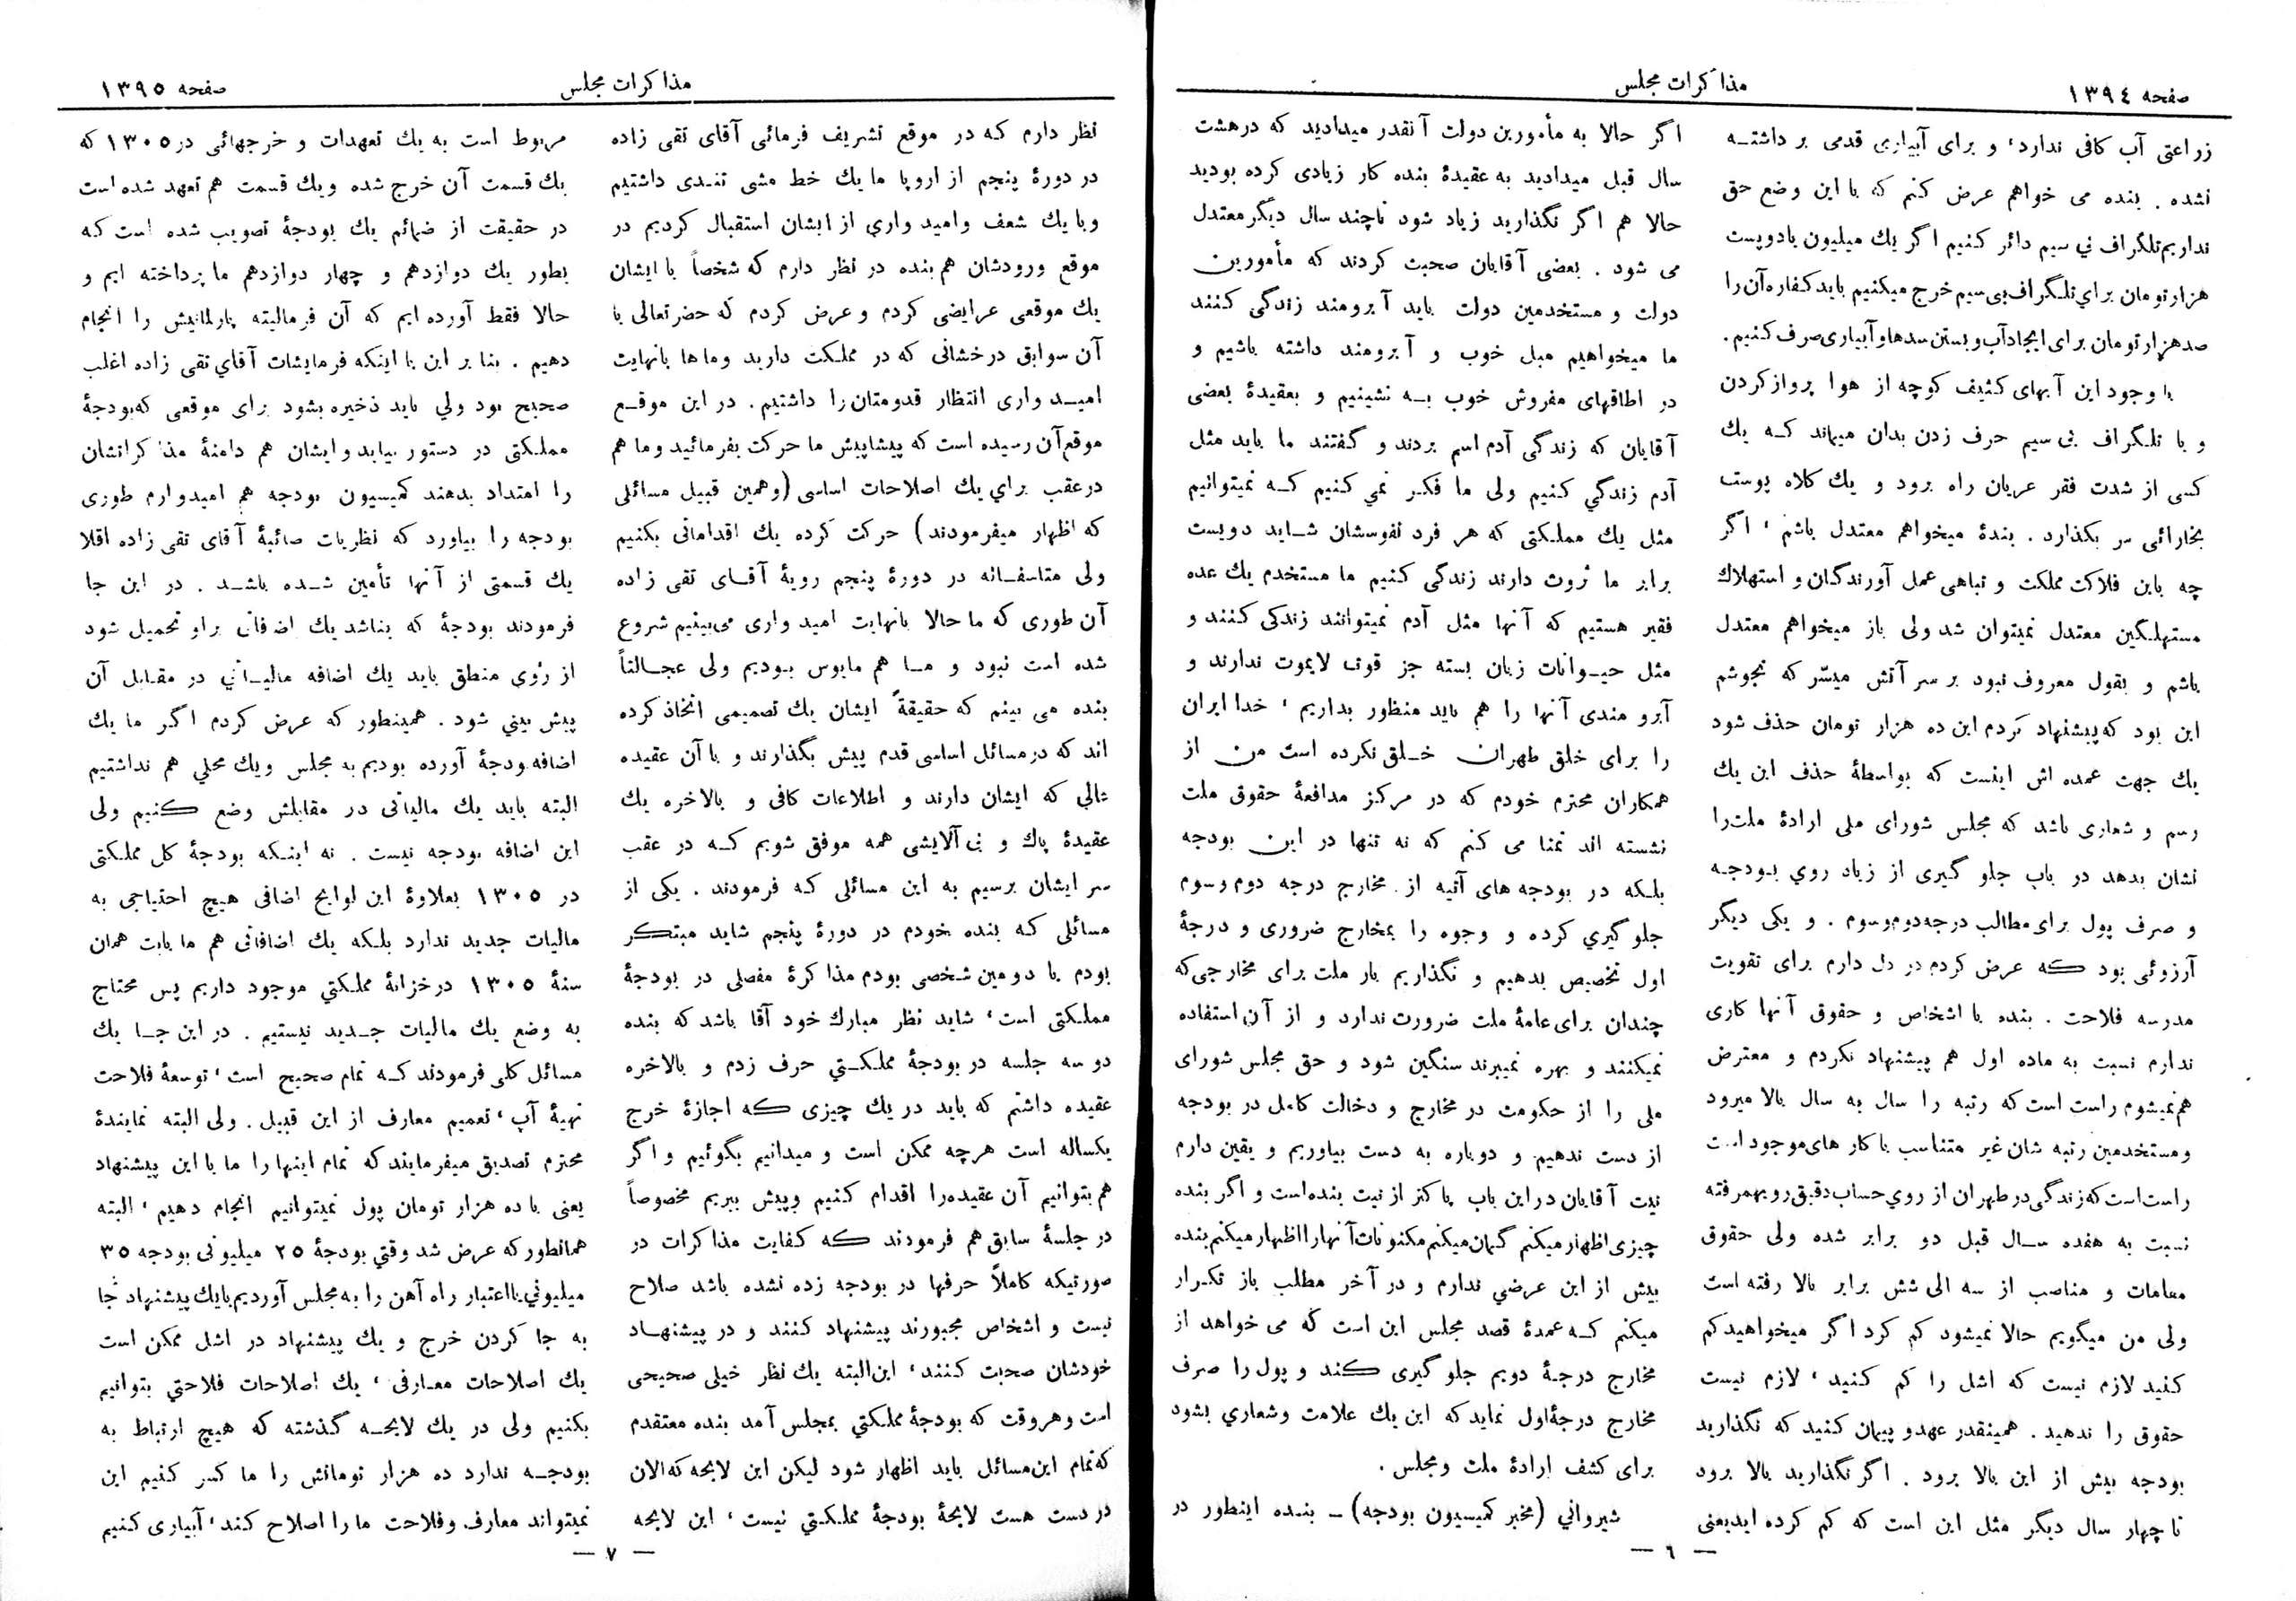 صفحه ١٣٩٤
مذاکرات مجلس
زراعتی آب کافی ندارد، و برای آبیاری قدمی بر داشته
نشده . بنده می خواهم عرض کنم که با این وضع حق
نداریم تلگراف بی سیم دائر کنیم اگر یك میلیون یا دویست
هزار تومان برای تلگراف بی سیم خرج میکنیم باید کفاره آن را
صد هزار تومان برای ایجاد آب و بستن سدها و آبیاری صرف کنیم .
با وجود این آبهای کثیف کوچه از هوا پرواز کردن
و با تلگراف بی سیم حرف زدن بدان میماند که یك
کسی از شدت فقر عریان راه برود و یك کلاه پوست
بخارائی سر بگذارد . بندۀ میخواهم معتدل باشم ، اگر
چه باین فلاکت مملکت و تباهی عمل آورندگان و استهلاك
مستهلکین معتدل نمیتوان شد ولی باز میخواهم معتدل
باشم و بقول معروف نبود بر سر آتش میسّر که نجوشم
این بود که پیشنهاد کردم این ده هزار تومان حذف شود
یك جهت عمده اش اینست که بواسطۀ حذف این یك
رسم و شعاری باشد که مجلس شورای ملی ارادۀ ملت را
نشان بدهد در باب جلو گیری از زیاد روی بودجه
و صرف پول برای مطالب درجه دوم و سوم . و یکی دیگر
آرزوئی بود که عرض کردم در دل دارم برای تقویت
مدرسه فلاحت . بنده با اشخاص و حقوق آنها کاری
ندارم نسبت به ماده اول هم پیشنهاد نکردم و معترض
هم نمیشوم راست است که رتبه را سال به سال بالا میرود
و مستخدمین رتبه شان غیر متناسب با کار های موجود است
راست است که زندگی در طهران از روی حساب دقیق رو بهمرفته
نسبت به هفده سال قبل دو برابر شده ولی حقوق
مقامات و مناصب از سه الی شش برابر بالا رفته است
ولی من میگویم حالا نمیشود کم کرد اگر میخواهید کم
کنید لازم نیست که اشل را کم کنید ، لازم نیست
حقوق را ندهید . همینقدر عهد و پیمان کنید که نگذارید
بودجه بیش از این بالا برود . اگر نگذارید بالا برود
تا چهار سال دیگر مثل این است که کم کرده اید یعنی
اگر حالا به مأمورین دولت آنقدر میدادید که در هشت
سال قبل میدادید به عقیدۀ بنده کار زیادی کرده بودید
حالا هم اگر نگذارید زیاد شود تا چند سال دیگر معتدل
می شود . بعضی آقایان صحبت کردند که مأمورین
دولت و مستخدمین دولت باید آبرومند زندگی کنند
ما میخواهیم مبل خوب و آبرومند داشته باشیم و
در اطاقهای مفروش خوب به نشینیم و بعقیدۀ بعضی
آقایان که زندگی آدم اسم بردند و گفتند ما باید مثل
آدم زندگی کنیم ولی ما فکر نمی کنیم که نمیتوانیم
مثل یك مملکتی که هر فرد نفوسشان شاید دویست
برابر ما ثروت دارند زندگی کنیم ما مستخدم یك عده
فقیر هستیم که آنها مثل آدم نمیتوانند زندگی کنند و
مثل حیوانات زبان بسته جز قوت لایموت ندارند و
آبرو مندی آنها را هم باید منظور بداریم ، خدا ایران
را برای خلق طهران خلق نکرده است من از
همکاران محترم خودم که در مرکز مدافعۀ حقوق ملت
نشسته اند تمنا می کنم که نه تنها در این بودجه
بلکه در بودجه های آتیه از مخارج درجه دوم و سوم
جلو گیری کرده و وجوه را بمخارج ضروری و درجۀ
اول تخصیص بدهیم و نگذاریم بار ملت برای مخارجی که
چندان برای عامۀ ملت ضرورت ندارد و از آن استفاده
نمیکنند و بهره نمیبرند سنگین شود و حق مجلس شورای
ملی را از حکومت در مخارج و دخالت کامل در بودجه
از دست ندهیم و دوباره به دست بیاوریم و یقین دارم
نیت آقایان در این باب پاکتر از نیت بنده است و اگر بنده
چیزی اظهار میکنم گمان میکنم مکنونات آنها را اظهار میکنم بنده
بیش از این عرضی ندارم و در آخر مطلب باز تکرار
میکنم که عمدۀ قصد مجلس این است که می خواهد از
مخارج درجۀ دویم جلو گیری کند و پول را صرف
مخارج درجۀ اول نماید که این یك علامت و شعاری بشود
برای کشف ارادۀ ملت و مجلس .
شیروانی (مخبر کمیسیون بودجه) ــ بنده اینطور در
— ٦ —
مذاکرات مجلس
صفحه ١٣٩٥
نظر دارم که در موقع تشریف فرمائی آقای تقی زاده
در دورۀ پنجم از اروپا ما یك خط مشی تندی داشتیم
و با یك شعف و امید واری از ایشان استقبال کردیم در
موقع ورودشان هم بنده در نظر دارم که شخصاً با ایشان
یك موقعی عرایضی کردم و عرض کردم که حضرتعالی با
آن سوابق درخشانی که در مملکت دارید و ماها بانهایت
امید واری انتظار قدومتان را داشتیم . در این موقع
موقع آن رسیده است که پیشاپیش ما حرکت بفرمائید و ما هم
در عقب برای یك اصلاحات اساسی (و همین قبیل مسائلی
که اظهار میفرمودند) حرکت کرده یك اقداماتی بکنیم
ولی متاسفانه در دورۀ پنجم رویۀ آقای تقی زاده
آن طوری که ما حالا بانهایت امید واری می بینیم شروع
شده است نبود و ما هم مایوس بودیم ولی عجالتاً
بنده می بینم که حقیقةً ایشان یك تصمیمی اتخاذ کرده
اند که در مسائل اساسی قدم پیش بگذارند و با آن عقیده
عالی که ایشان دارند و اطلاعات کافی و بالاخره یك
عقیدۀ پاك و بی آلایشی همه موفق شویم که در عقب
سر ایشان برسیم به این مسائلی که فرمودند . یکی از
مسائلی که بنده خودم در دورۀ پنجم شاید مبتکر
بودم یا دومین شخصی بودم مذاکرۀ مفصلی در بودجۀ
مملکتی است ، شاید نظر مبارك خود آقا باشد که بنده
دو سه جلسه در بودجۀ مملکتی حرف زدم و بالاخره
عقیده داشتم که باید در یك چیزی که اجازۀ خرج
یکساله است هرچه ممکن است و میدانیم بگوئیم و اگر
هم بتوانیم آن عقیده را اقدام کنیم و پیش ببریم مخصوصاً
در جلسۀ سابق هم فرمودند که کفایت مذاکرات در
صورتیکه کاملاً حرفها در بودجه زده نشده باشد صلاح
نیست و اشخاص مجبورند پیشنهاد کنند و در پیشنهاد
خودشان صحبت کنند ، این البته یك نظر خیلی صحیحی
است و هر وقت که بودجۀ مملکتی بمجلس آمد بنده معتقدم
که تمام این مسائل باید اظهار شود لیکن این لایحه که الان
در دست هست لایحۀ بودجۀ مملکتی نیست ، این لایحه
مربوط است به یك تعهدات و خرجهائی در ١٣٠٥ که
یك قسمت آن خرج شده و یك قسمت هم تعهد شده است
در حقیقت از ضمائم یك بودجۀ تصویب شده است که
بطور یك دوازدهم و چهار دوازدهم ما پرداخته ایم و
حالا فقط آورده ایم که آن فرمالیته پارلمانیش را انجام
دهیم . بنا بر این با اینکه فرمایشات آقای تقی زاده اغلب
صحیح بود ولی باید ذخیره بشود برای موقعی که بودجۀ
مملکتی در دستور بیاید و ایشان هم دامنۀ مذاکراتشان
را امتداد بدهند کمیسیون بودجه هم امیدوارم طوری
بودجه را بیاورد که نظریات صائبۀ آقای تقی زاده اقلا
یك قسمتی از آنها تأمین شده باشد . در این جا
فرمودند بودجۀ که بناشد یك اضافاتی براو تحمیل شود
از روی منطق باید یك اضافه مالیاتی در مقابل آن
پیش بینی شود . همینطور که عرض کردم اگر ما یك
اضافه بودجۀ آورده بودیم به مجلس و یك محلی هم نداشتیم
البته باید یك مالیاتی در مقابلش وضع کنیم ولی
این اضافه بودجه نیست . نه اینکه بودجۀ کل مملکتی
در ١٣٠٥ بعلاوۀ این لوایح اضافی هیچ احتیاجی به
مالیات جدید ندارد بلکه یك اضافاتی هم ما بابت همان
سنۀ ١٣٠٥ در خزانۀ مملکتی موجود داریم پس محتاج
به وضع یك مالیات جدید نیستیم . در این جا یك
مسائل کلی فرمودند که تمام صحیح است ، توسعۀ فلاحت
تهیۀ آب ، تعمیم معارف از این قبیل . ولی البته نمایندۀ
محترم تصدیق میفرمایند که تمام اینها را ما با این پیشنهاد
یعنی با ده هزار تومان پول نمیتوانیم انجام دهیم ، البته
همانطور که عرض شد وقتی بودجۀ ٢٥ میلیونی بودجه ٣٥
میلیونی با اعتبار راه آهن را به مجلس آوردیم با یك پیشنهاد جا
به جا کردن خرج و یك پیشنهاد در اشل ممکن است
یك اصلاحات معارفی ، یك اصلاحات فلاحتی بتوانیم
بکنیم ولی در یك لایحه گذشته که هیچ ارتباط به
بودجه ندارد ده هزار تومانش را ما کسر کنیم این
نمیتواند معارف و فلاحت ما را اصلاح کند ، آبیاری کنیم
— ٧ —